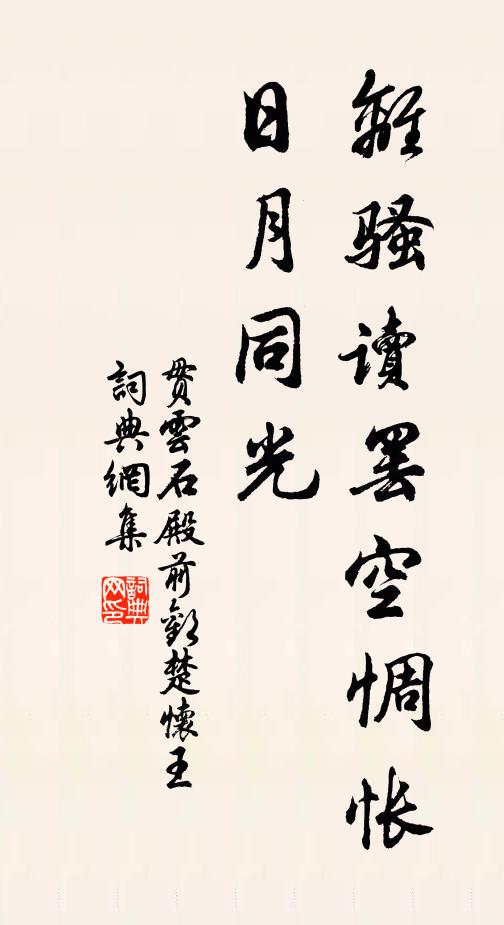 離騷讀罷空惆悵
日月同光
貫雲石殿前歡楚懷王
詞典網集
詞典
网印